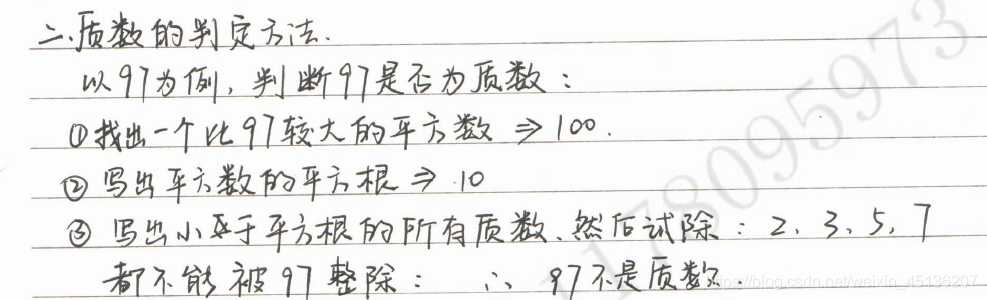 二.质数的判定方法.
以97为例,判断97是否为质数:
①找出一个比97较大的平方数 ⇒ 100.
②写出平方数的平方根 ⇒ 10
③写出小于平方根的所有质数、然后试除: 2、3、5、7
都不能被97整除: ∴ 97不是质数.
1178095973
https://blog.csdn.net/weixin_45136207